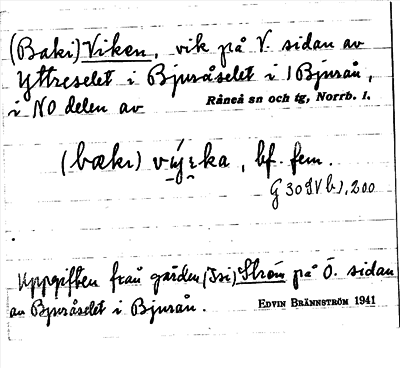 (Baki) Viken, vik på V. sidan av
Yttreselet i Bjuråselet i l Bjurån,
i NO delen av Råneå sn och tg, Norrb. l.
(bækı) výɛka, bf. fem.
G 30 SV b), 200
Uppgiften från gården (Isi) Ström på Ö. sidan
av Bjuråselet i Bjurån. EDVIN BRÄNNSTRÖM 1941